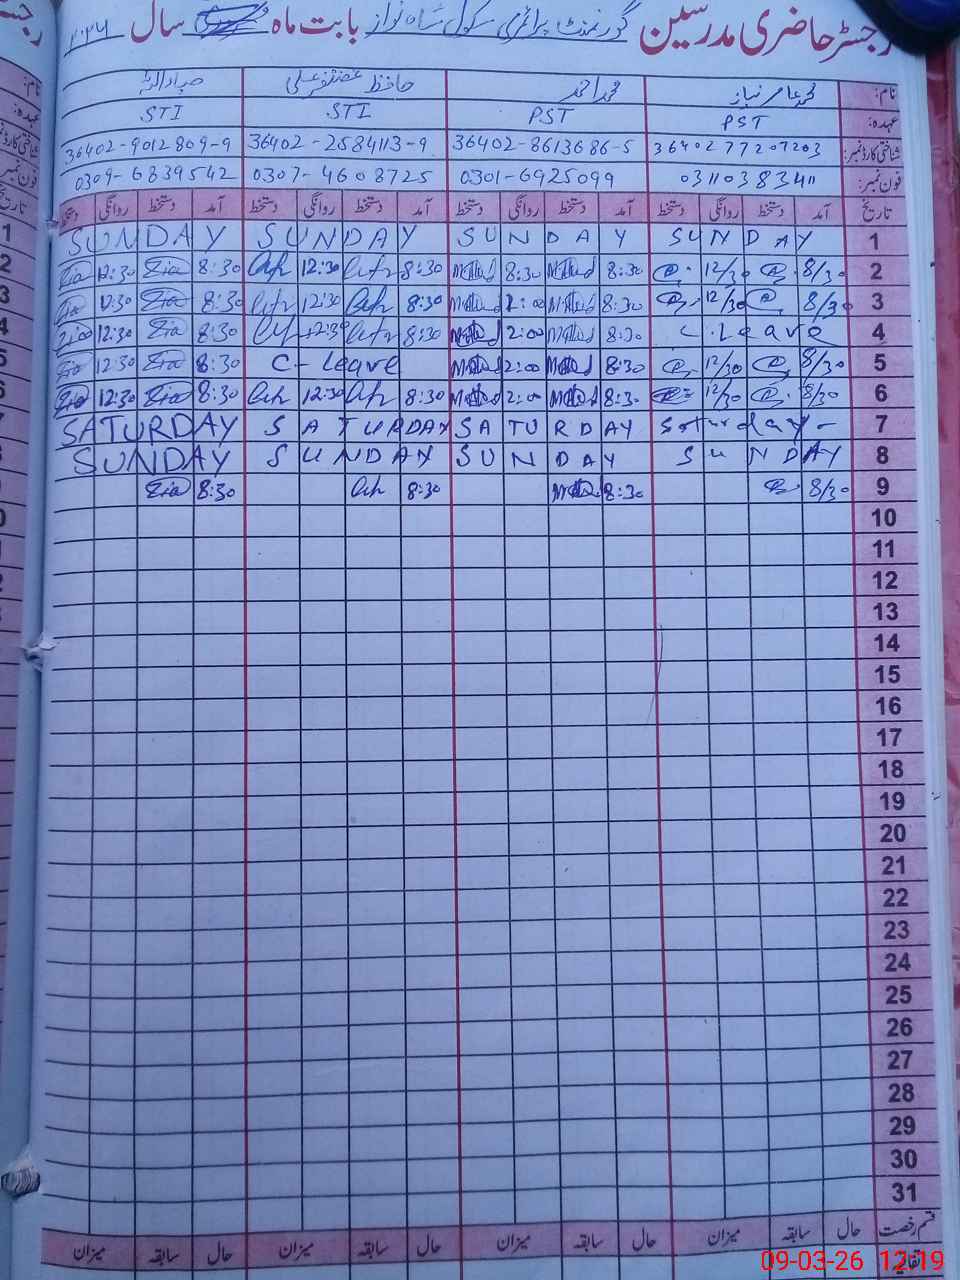 رجسٹر حاضری مدرسین گورنمنٹ پرائمری سکول شاہ نواز بابت ماہ سال
نام: محمد عامر نیاز محمد احمد حافظ غضنفر علی
عہدہ: PST PST STI STI
شناختی کارڈ نمبر: 36402-8613686-5 36402-2584113-9 36402-9012809-9
فون نمبر: 03110383411 0301-6925099 0307-4608725 0309-6839542
تاریخ آمد دستخط روانگی دستخط آمد دستخط روانگی دستخط آمد دستخط روانگی دستخط آمد دستخط روانگی دستخط
1 SUNDAY SUNDAY SUNDAY SUNDAY
2 8/30 12/30 8:30 8:30 8:30 12:30 8:30 Zia 12:30 Zia
3 8/30 12/30 8:30 2:00 8:30 12:30 8:30 Zia 12:30 Zia
4 C-Leave 8:30 2:00 8:30 12:30 8:30 Zia 12:30
5 8/30 12/30 8:30 2:00 C-Leave 8:30 Zia 12:30 Zia
6 8/30 12/30 8:30 2:00 8:30 12:30 8:30 Zia 12:30 Zia
7 Saturday- SATURDAY SATURDAY SATURDAY
8 SUNDAY SUNDAY SUNDAY SUNDAY
9 8/30 8:30 8:30 8:30 Zia
10
11
12
13
14
15
16
17
18
19
20
21
22
23
24
25
26
27
28
29
30
31
قسم رخصت حال سابقہ میزان حال سابقہ میزان حال سابقہ میزان حال سابقہ میزان
09-03-26 12:19